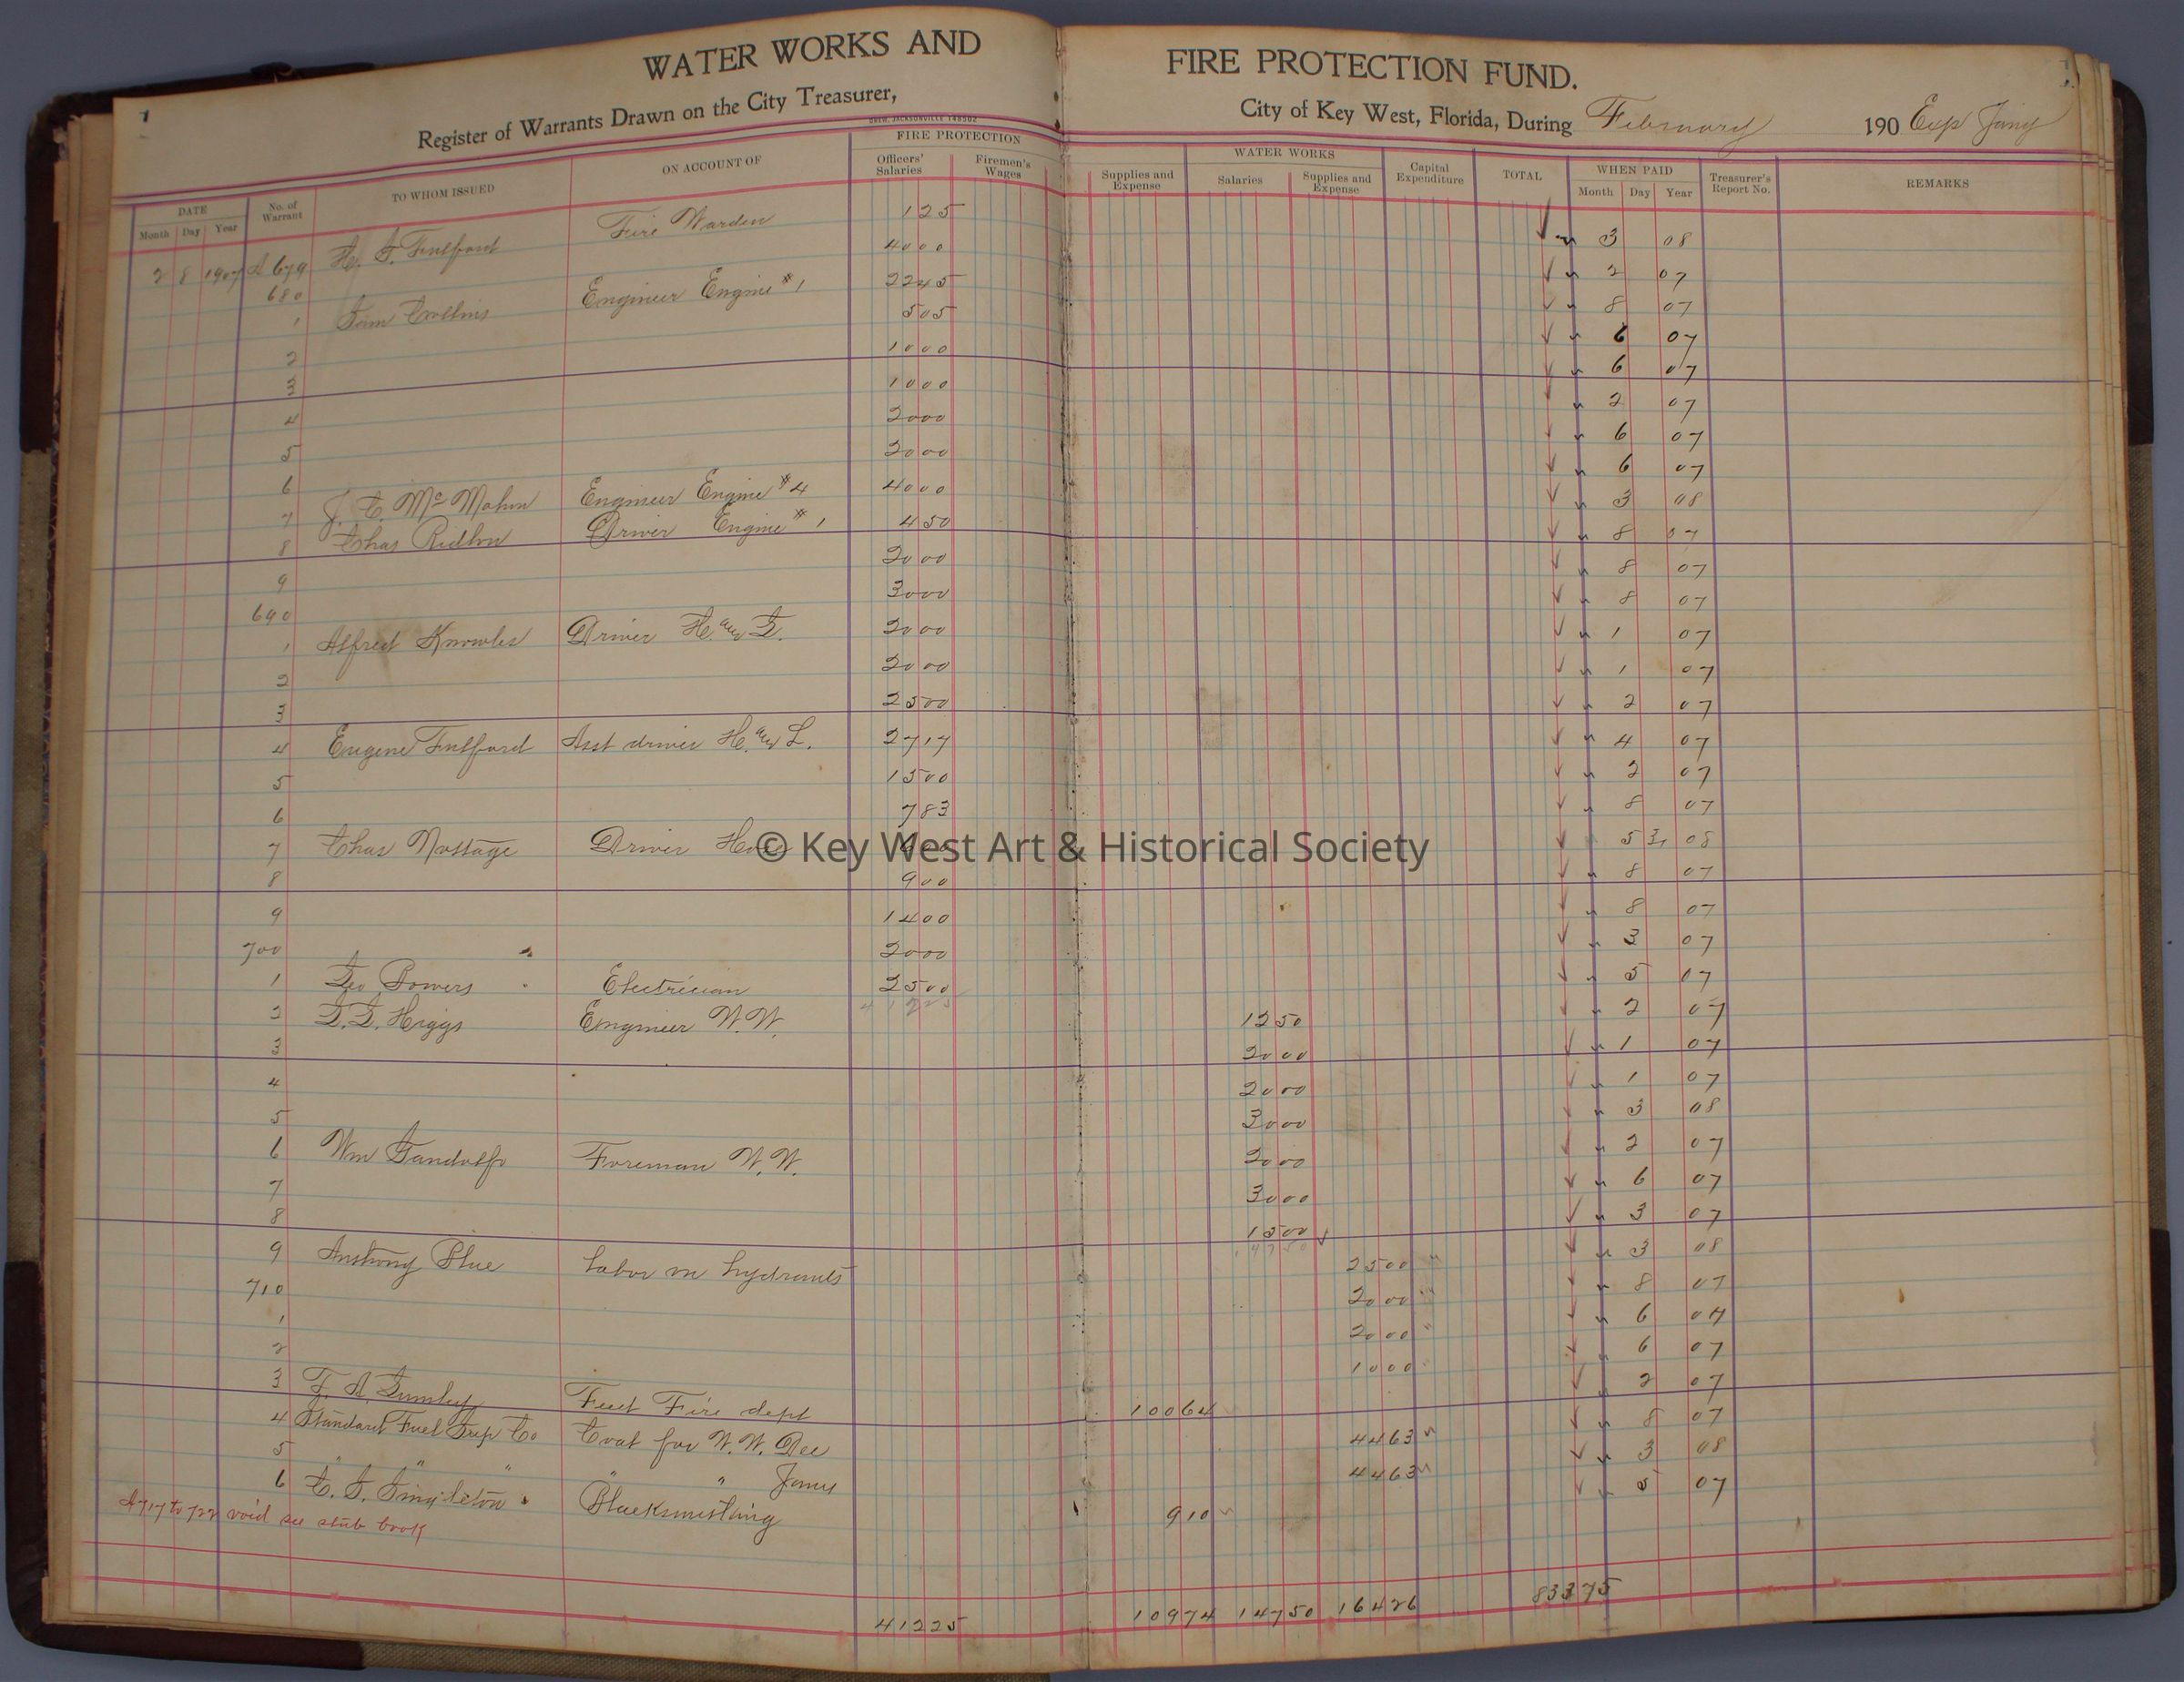 1
WATER WORKS AND FIRE PROTECTION FUND.
Register of Warrants Drawn on the City Treasurer, City of Key West, Florida, During February 190 Exp Jany
DREW, JACKSONVILLE 148502
DATE No. of Warrant TO WHOM ISSUED ON ACCOUNT OF FIRE PROTECTION WATER WORKS Capital Expenditure TOTAL WHEN PAID Treasurer's Report No. REMARKS
Month Day Year Officers' Salaries Firemen's Wages Supplies and Expense Salaries Supplies and Expense Month Day Year
2 8 1907 A 679 Fire Warden 125 3 08
680 4000 2 07
1 Engineer Engine #1 2245 8 07
2 505 6 07
3 1000 6 07
4 1000 2 07
5 2000 6 07
6 2000 6 07
7 J. C. McMahon Engineer Engine #4 4000 3 08
8 Chas Ridlon Driver Engine #1 450 8 07
9 2000 8 07
690 3000 8 07
1 Alfred Knowles Driver H. and L. 2000 1 07
2 2000 1 07
3 2500 2 07
4 Eugene Fulford Asst driver H. and L. 2717 4 07
5 1500 2 07
6 783 8 07
7 Chas Nottage Driver Hose 5 31 08
8 900 8 07
9 1400 8 07
700 2000 3 07
1 Geo Bowers Electrician 2500 5 07
41225
2 Higgs Engineer W.W. 1250 2 07
3 2000 1 07
4 2000 1 07
5 3000 3 08
6 Wm Gandolfo Foreman W.W. 2000 2 07
7 3000 6 07
8 1500 3 07
14750
9 Anthony Blue Labor on hydrants 2500 " 3 08
710 2000 " 8 07
1 2000 " 6 07
2 1000 6 07
3 Fuel Fire dept 10064 2 07
4 Standard Fuel Sup Co Coal for W.W. Dec 4463 8 07
5 " " " " " Jany 4463 3 08
6 Singleton Blacksmithing 910 5 07
A 717 to 722 void see stub book
41225 10974 14750 16426 83375
© Key West Art & Historical Society